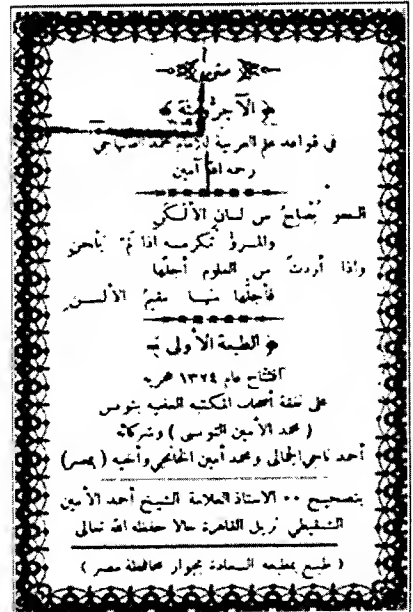 متن
﴿ الآجرومية ﴾
في قواعد علم العربية للإمام محمد الصنهاجي
رحمه الله آمين
النحو يُصلحُ من لسانِ الألْكَنِ
والمرءُ تُكرمه اذا لَمْ يلحنِ
واذا أردتَ من العلوم أجلّها
فأجلّها منها مقيمُ الألسنِ
﴿ الطبعة الأولى ﴾
افتتاح عام ١٣٢٤ هجريه
على نفقة أصحاب المكتبه العلميه بتونس
( محمد الأمين التونسي ) وشركائه
أحمد ناجي الجمالى ومحمد أمين الخانجي وأخيه ( بمصر )
بتصحيح ٠٠ الاستاذ العلامة الشيخ أحمد الأمين
الشنقيطي نزيل القاهرة حالا حفظه الله تعالى
( طبع بمطبعه السعادة بجوار محافظة مصر )